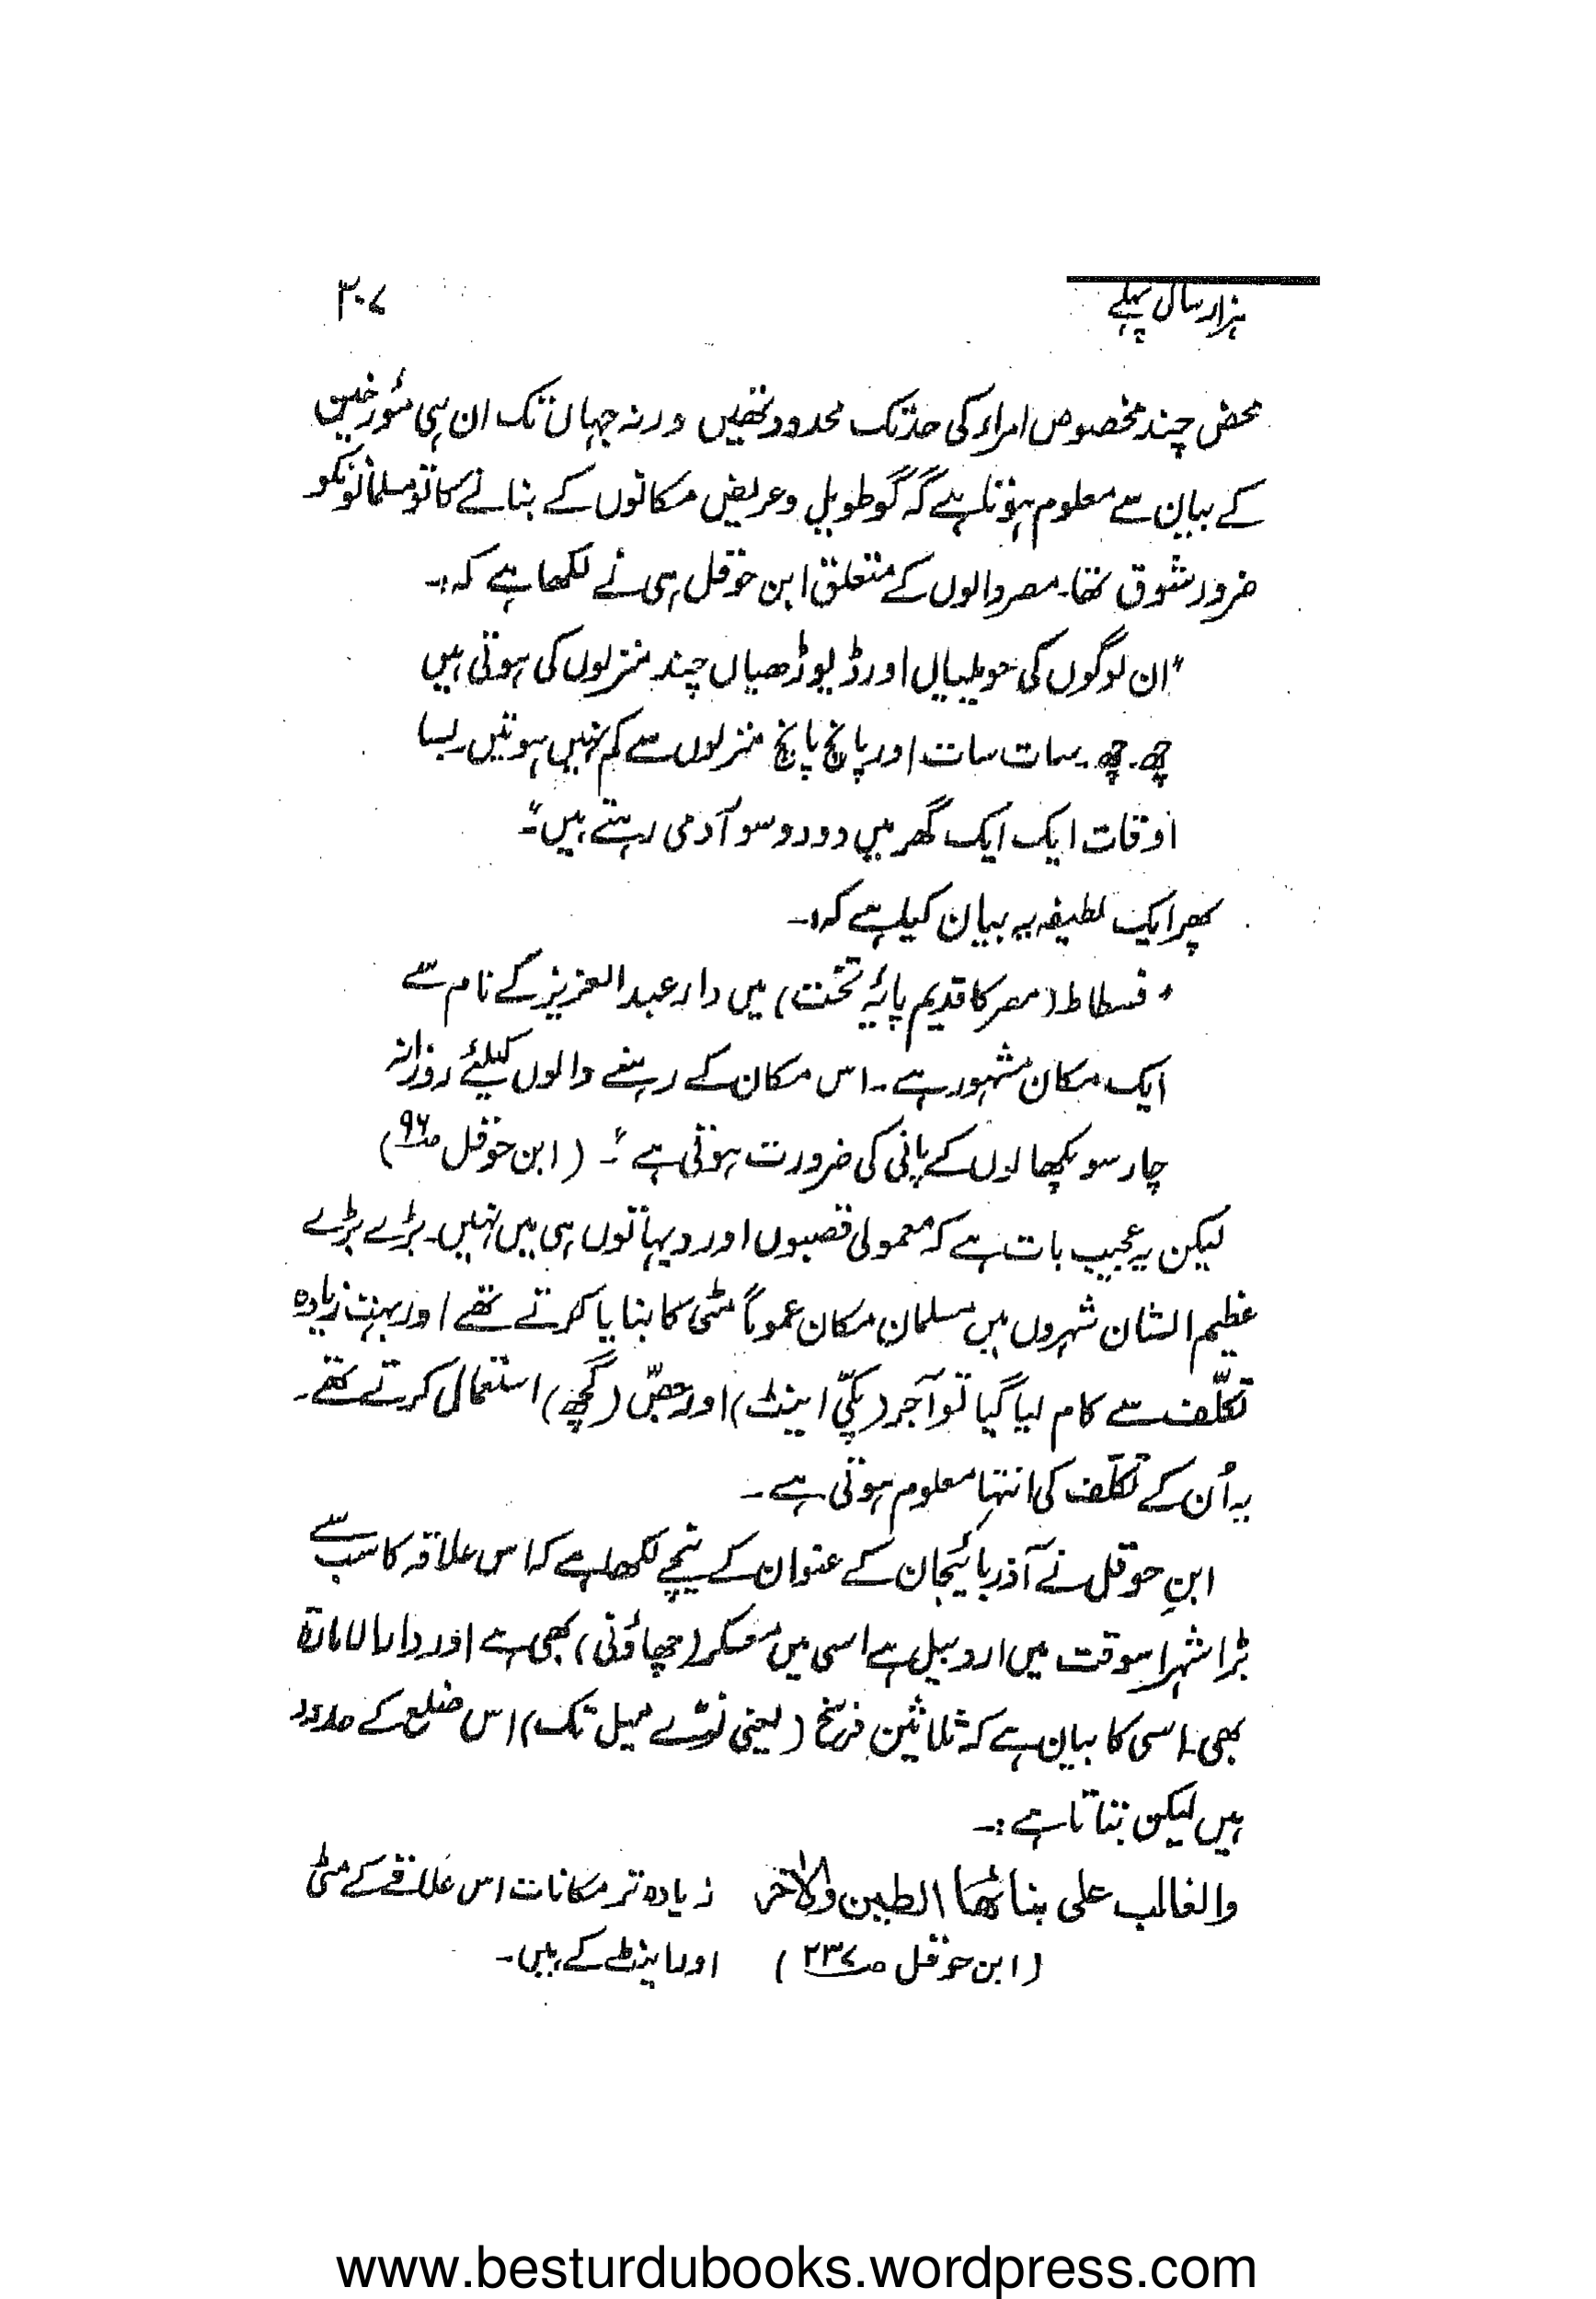 ہزار سال پہلے
۳۰۷
محض چند مخصوص امراء کی حد تک محدود تھیں ورنہ جہاں تک ان ہی مؤرخین
کے بیان سے معلوم ہوتا ہے کہ گو طویل و عریض مکانوں کے بنانے کا تو مسلمانونکو
ضرور شوق تھا۔ مصر والوں کے متعلق ابن حوقل ہی نے لکھا ہے کہ:۔
"ان لوگوں کی حویلیاں اور ڈیوڑھیاں چند منزلوں کی ہوتی ہیں
چھ۔ چھ۔ سات سات اور پانچ پانچ منزلوں سے کم نہیں ہوتیں بسا
اوقات ایک ایک گھر میں دو دو سو آدمی رہتے ہیں"۔
پھر ایک لطیفہ یہ بیان کیا ہے کہ:۔
"فسطاط (مصر کا قدیم پایۂ تخت) میں دار عبدالعزیز کے نام سے
ایک مکان مشہور ہے۔ اس مکان کے رہنے والوں کیلئے روزانہ
چار سو پکھالوں کے پانی کی ضرورت ہوتی ہے"۔ (ابن حوقل ص۹۶)
لیکن یہ عجیب بات ہے کہ معمولی قصبوں اور دیہاتوں ہی میں نہیں۔ بڑے بڑے
عظیم الشان شہروں میں مسلمان مکان عموماً مٹی کا بنایا کرتے تھے اور بہت زیادہ
تکلّف سے کام لیا گیا تو آجر (پکّی اینٹ) اور جصّ (گچھ) استعمال کرتے تھے۔
یہ اُن کے تکلّف کی انتہا معلوم ہوتی ہے۔
ابنِ حوقل نے آذربائیجان کے عنوان کے نیچے لکھا ہے کہ اس علاقہ کا سب سے
بڑا شہر اسوقت میں اردبیل ہے اسی میں معسکر (چھاؤنی) بھی ہے اور دارالامارۃ
بھی۔ اسی کا بیان ہے کہ ثلاثین فرسخ (یعنی نوّے میل تک) اس ضلع کے حدود
ہیں لیکن بتاتا ہے:۔
والغالب علی بنائھا الطین والآخر زیادہ تر مکانات اس علاقے کے مٹی
(ابن حوقل ص۲۳۷) اور اینٹے کے ہیں۔
www.besturdubooks.wordpress.com